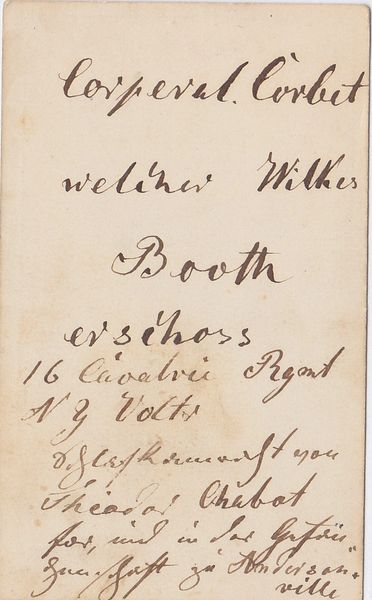 Corperal. Corbet
welcher Wilkes
Booth
erschoss
16 Cavalrie Rgmt
N Y Voltr
von
Theodor Chabot
for, und in der Gefan
genschaft zu Anderson-
ville